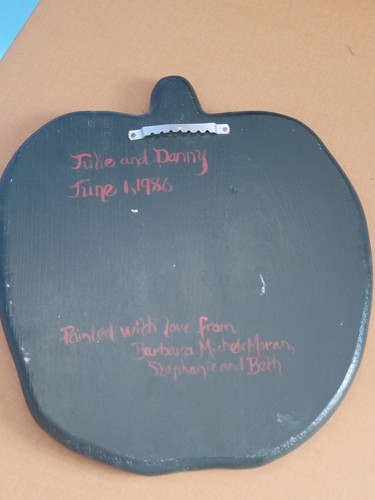 Julie and Danny
June 1, 1986
Painted with love from
Barbara Michele Moran,
Stephanie and Beth